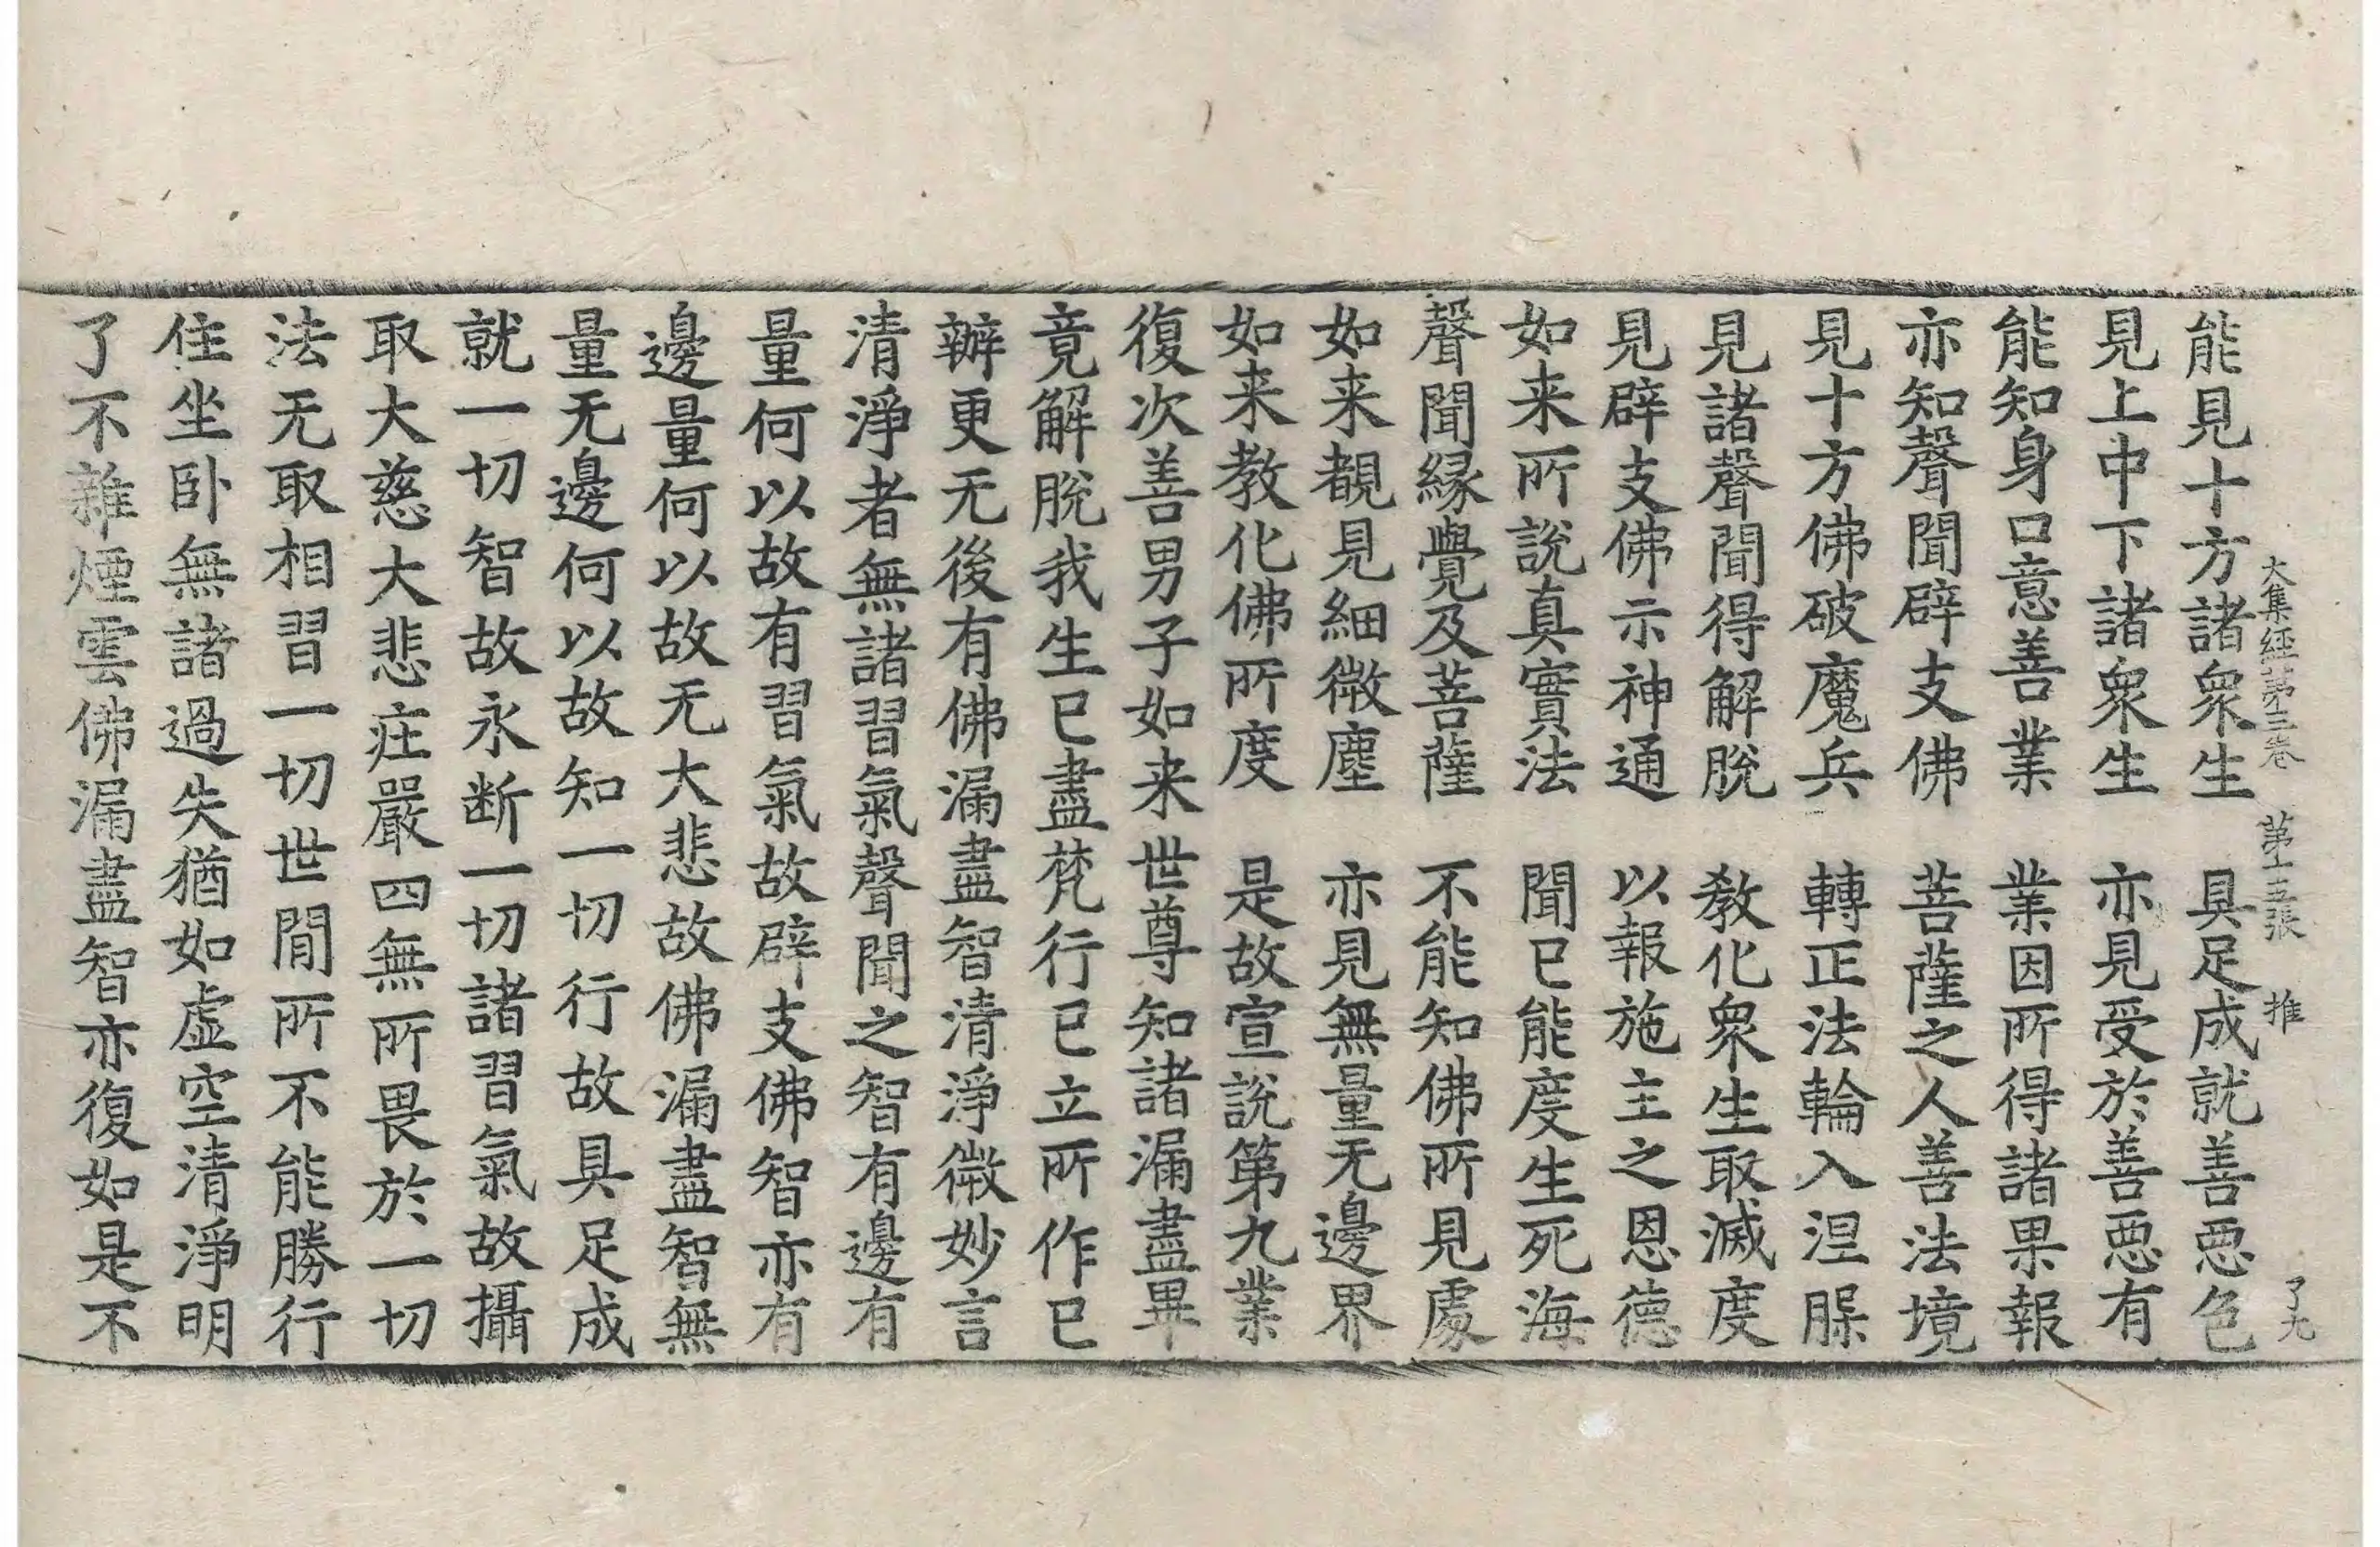 大集經第三卷　第十五張　推　了九
能見十方諸衆生　具足成就善惡色
見上中下諸衆生　亦見受於善惡有
能知身口意善業　業因所得諸果報
亦知聲聞辟支佛　菩薩之人善法境
見十方佛破魔兵　轉正法輪入涅槃
見諸聲聞得解脫　教化衆生取滅度
見辟支佛示神通　以報施主之恩德
如来所說真實法　聞已能度生死海
聲聞縁覺及菩薩　不能知佛所見處
如来覩見細微塵　亦見無量无邊界
如来教化佛所度　是故宣說第九業
復次善男子如来世尊知諸漏盡畢
竟解脫我生已盡梵行已立所作已
辦更无後有佛漏盡智清淨微妙言
清淨者無諸習氣聲聞之智有邊有
量何以故有習氣故辟支佛智亦有
邊量何以故无大悲故佛漏盡智無
量无邊何以故知一切行故具足成
就一切智故永断一切諸習氣故攝
取大慈大悲庄嚴四無所畏於一切
法无取相習一切世閒所不能勝行
住坐卧無諸過失猶如虛空清淨明
了不雜煙雲佛漏盡智亦復如是不